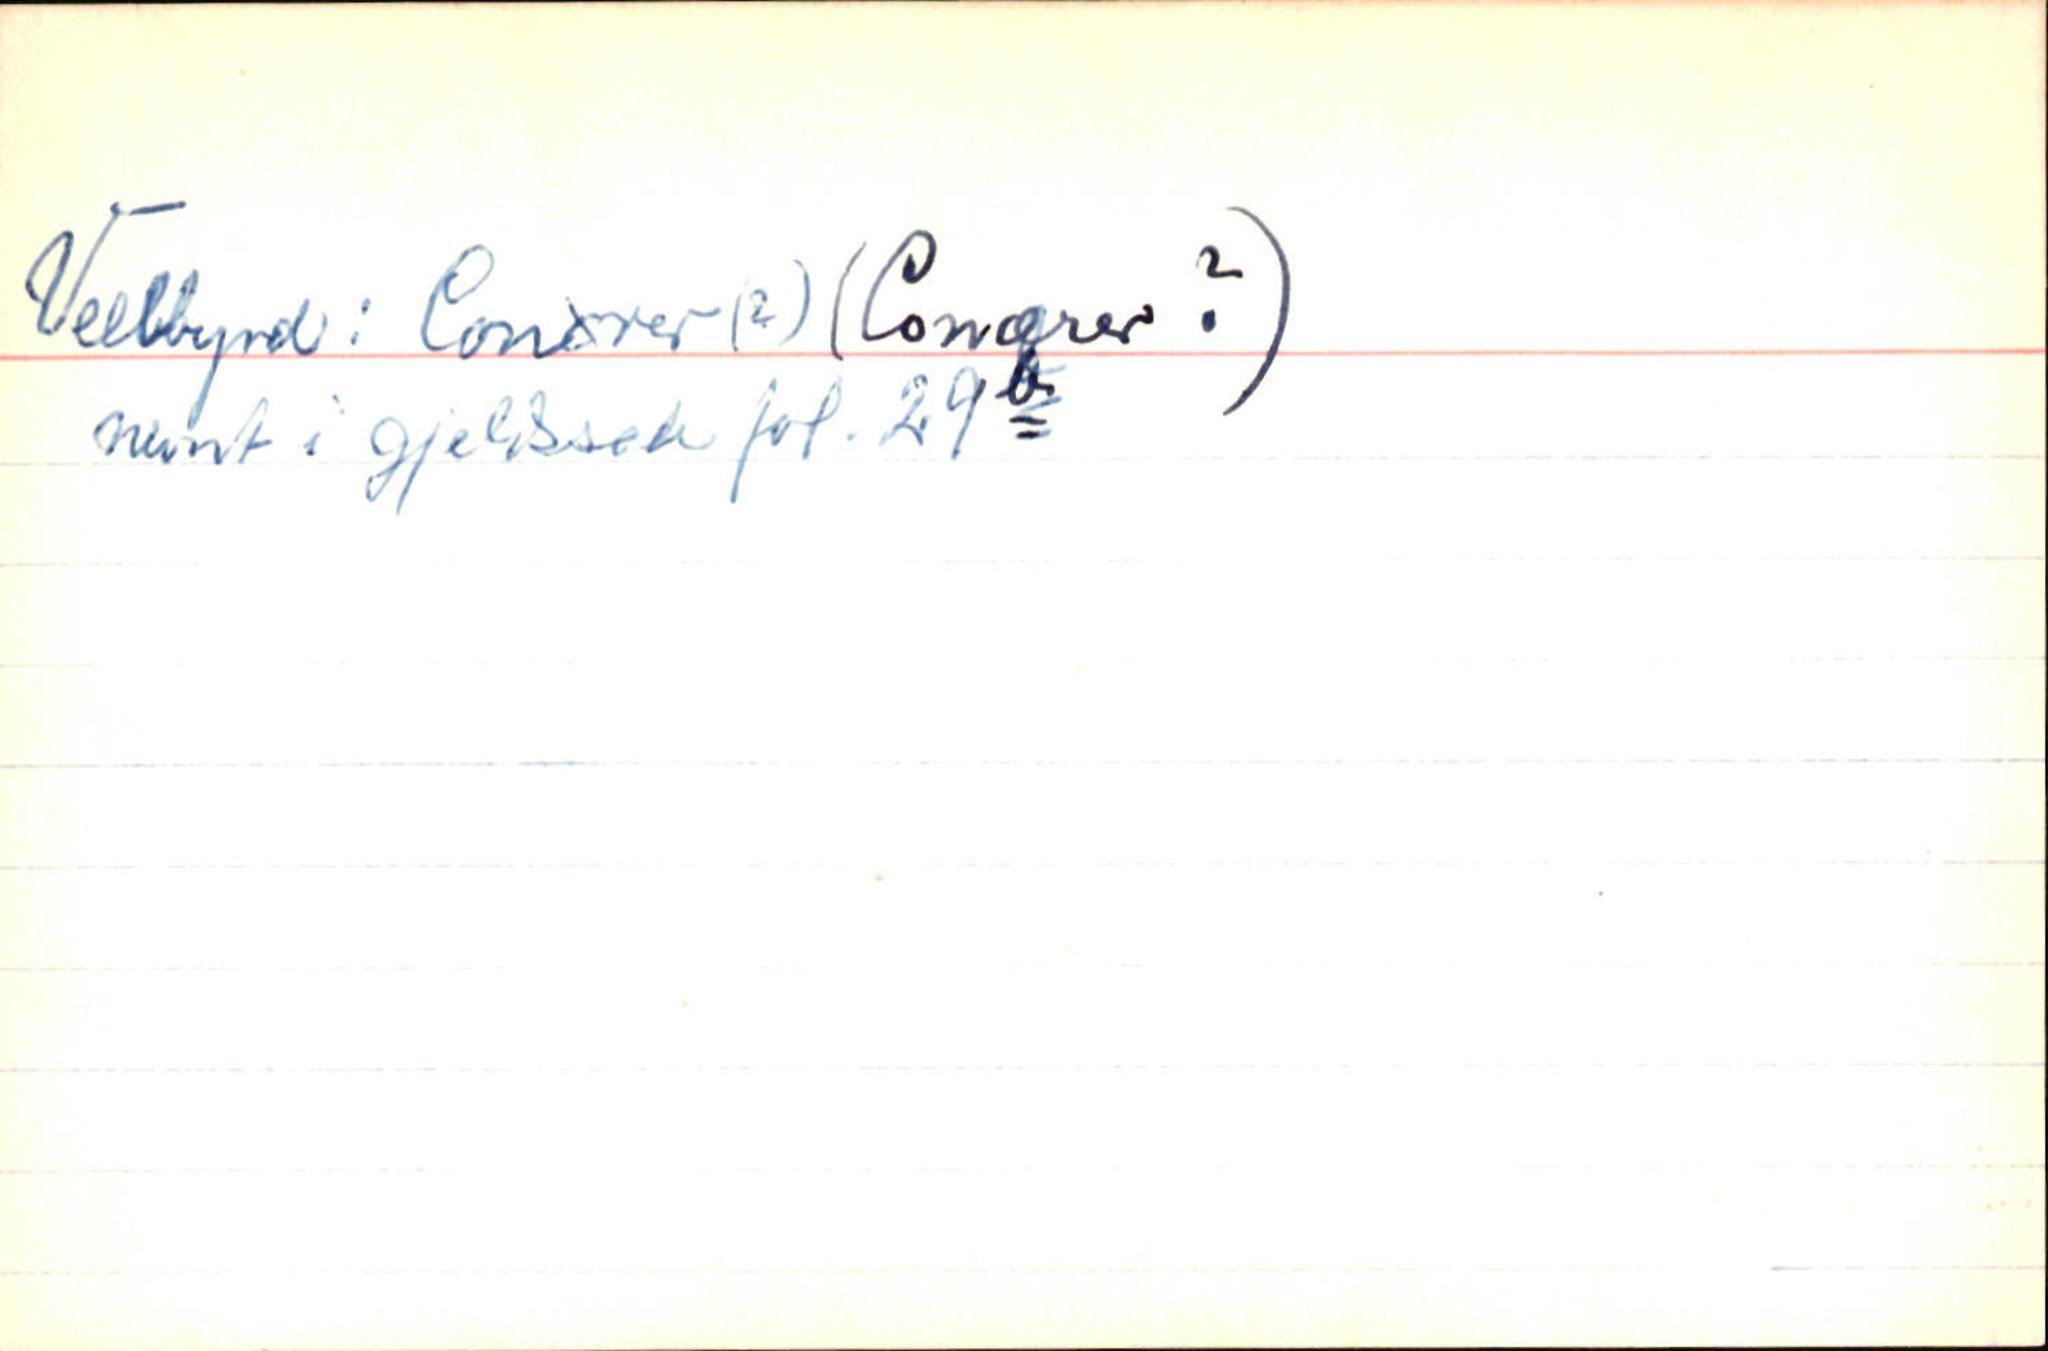 Velbyrd: Conixrer (?) (Conqrer?)
nevnt i gjeldssed fol. 29 b